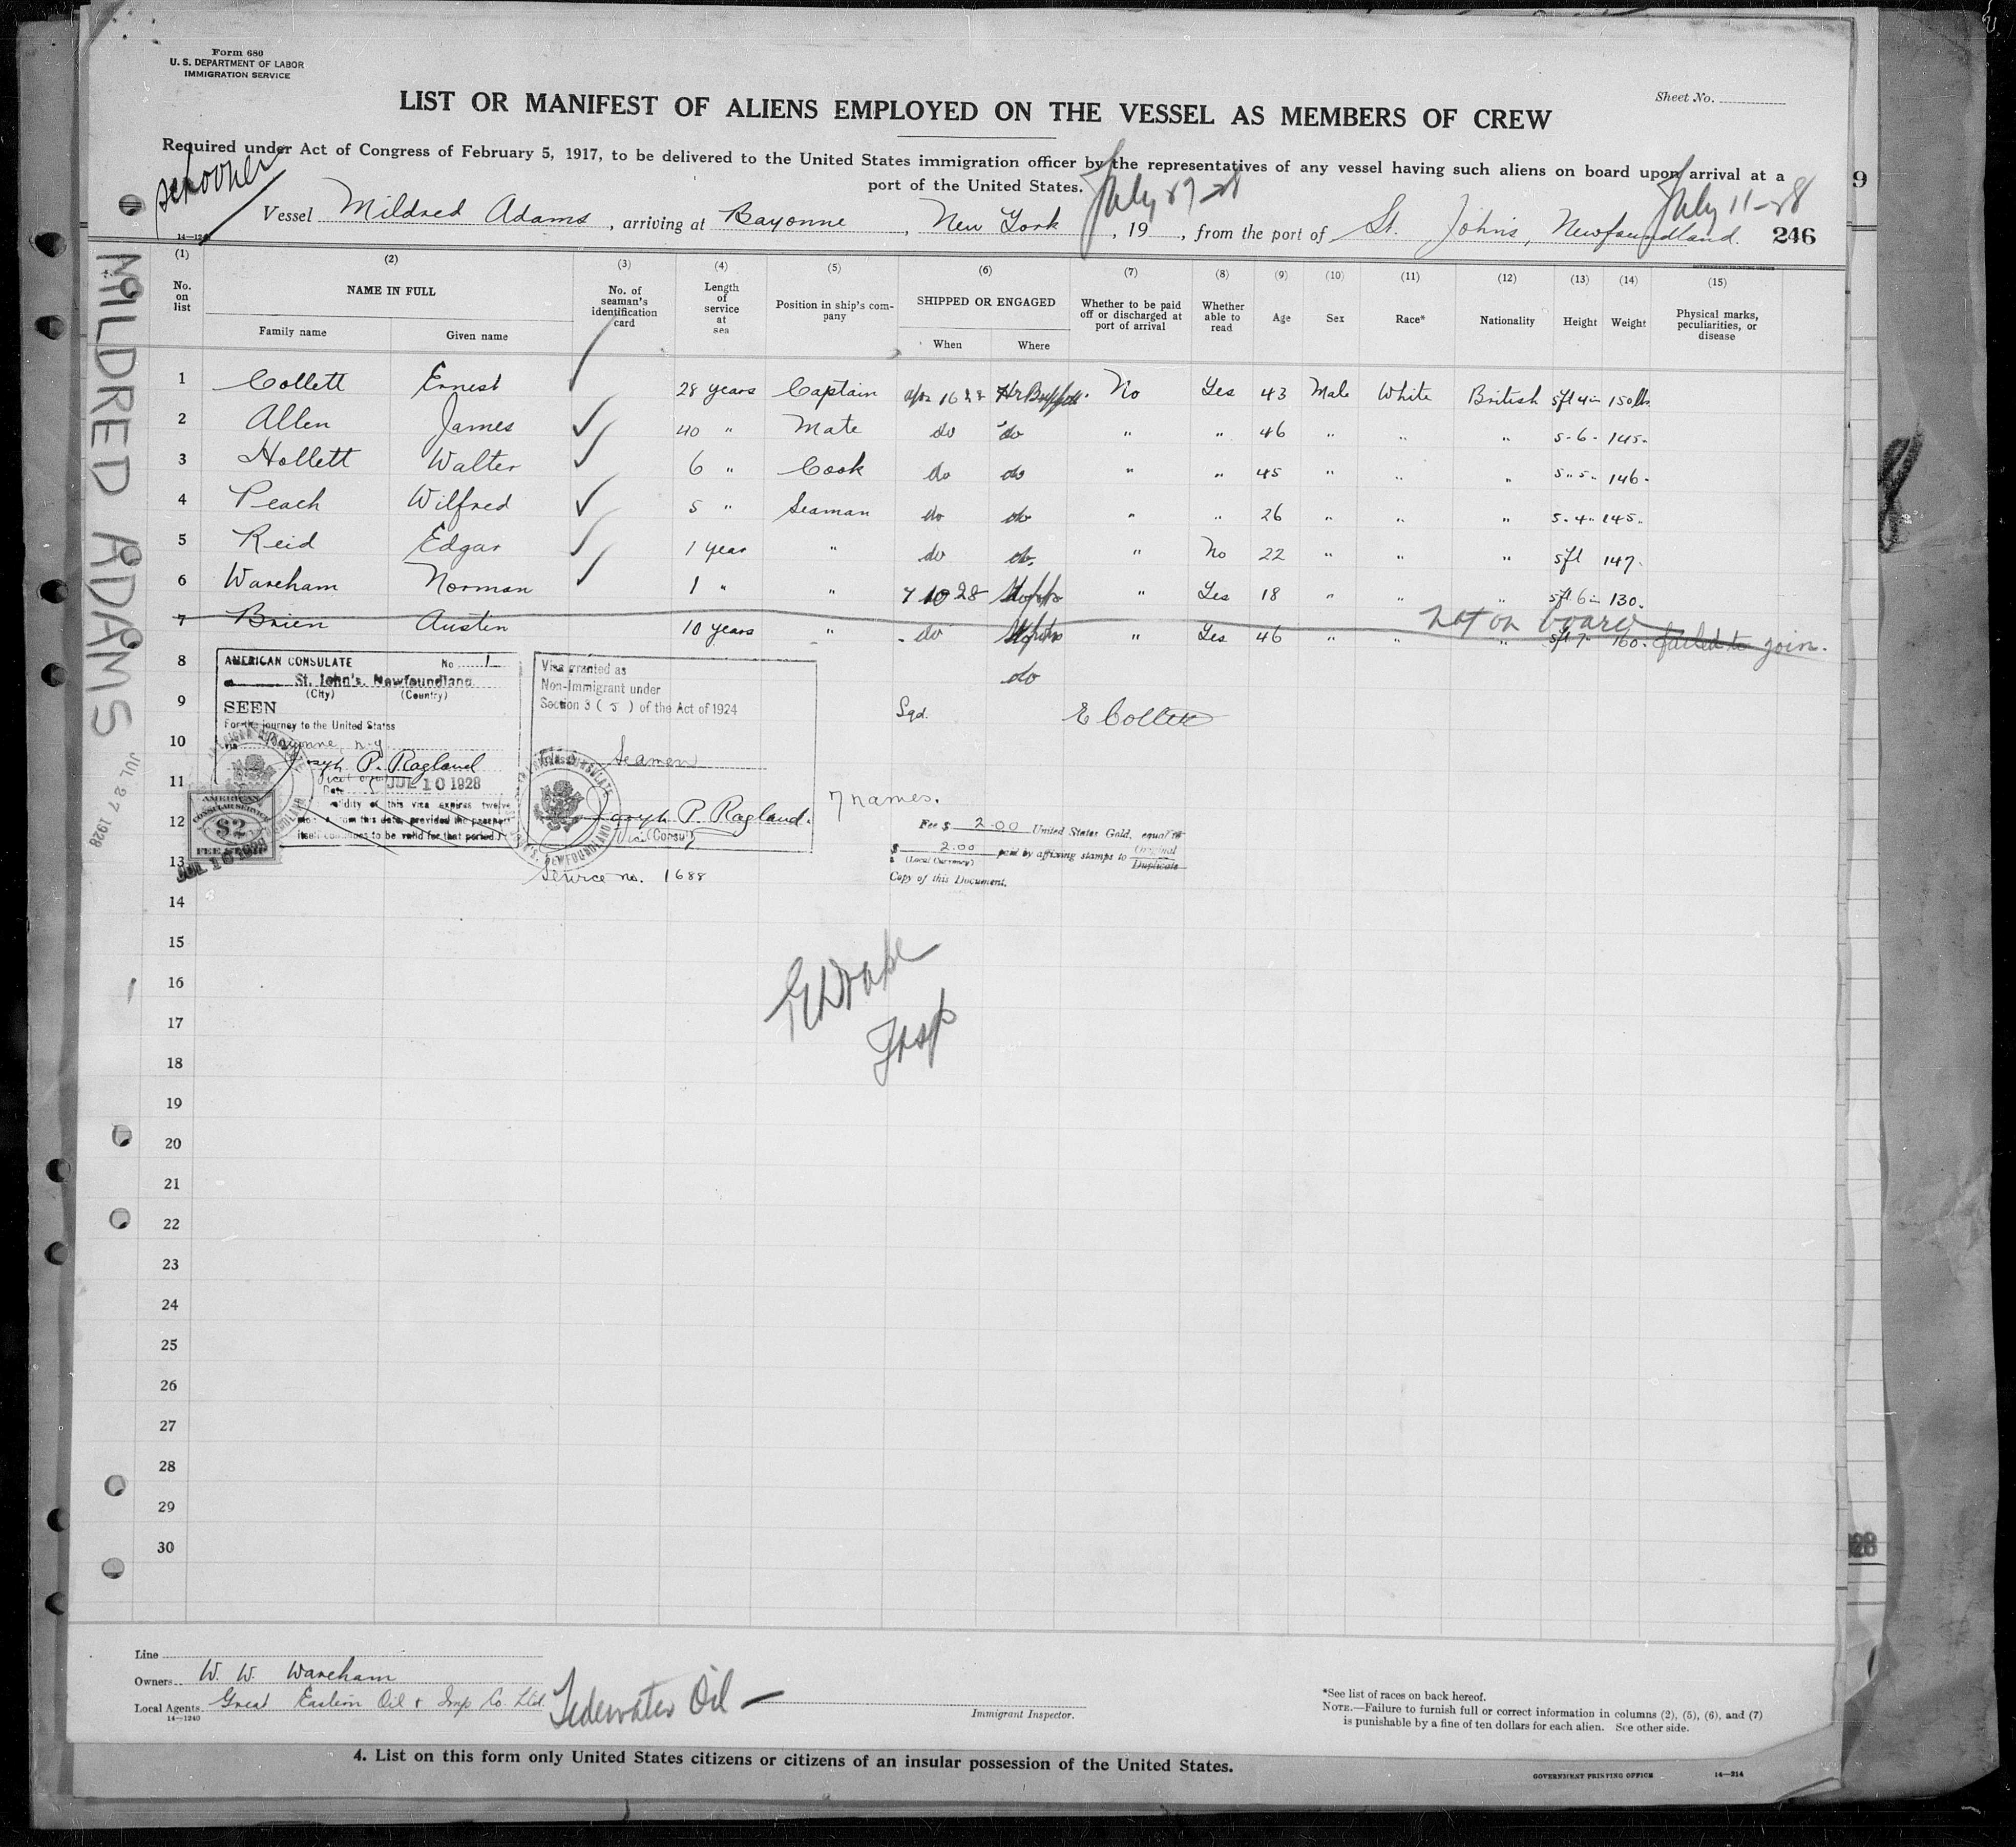 Form 680
U. S. DEPARTMENT OF LABOR
IMMIGRATION SERVICE
Sheet No.
LIST OR MANIFEST OF ALIENS EMPLOYED ON THE VESSEL AS MEMBERS OF CREW
Required under Act of Congress of February 5, 1917, to be delivered to the United States immigration officer by the representatives of any vessel having such aliens on board upon arrival at a
port of the United States.
schooner
July 27-28
July 11-28
Vessel Mildred Adams, arriving at Bayonne, New York, 19 , from the port of St. Johns, Newfoundland. 246
14—1240
MILDRED ADAMS
JUL 27 1928
(1) (2) (3) (4) (5) (6) (7) (8) (9) (10) (11) (12) (13) (14) (15)
GOVERNMENT PRINTING OFFICE
No. on list
NAME IN FULL
Family name
Given name
No. of seaman's identification card
Length of service at sea
Position in ship's company
SHIPPED OR ENGAGED
When
Where
Whether to be paid off or discharged at port of arrival
Whether able to read
Age
Sex
Race*
Nationality
Height
Weight
Physical marks, peculiarities, or disease
1 Collett Ernest 28 years Captain Apr 16 28 No Yes 43 Male White British 5ft 4in 150lbs
2 Allen James 40 " Mate do do " " 46 " " " 5-6- 145-
3 Hollett Walter 6 " Cook do do " " 45 " " " 5"5" 146-
4 Peach Wilfred 5 " Seaman do do " " 26 " " " 5-4" 145-
5 Reid Edgar 1 year " do do " No 22 " " " 5ft 147-
6 Wareham Norman 1 " " 7 10 28 " Yes 18 " " " 5ft 6in 130.
not on board
7 Brien Austin 10 years " do " Yes 46 " " " 5ft 7- 160- failed to join.
8 do
9 Sgd. E Collett
10
11
12
13
14
15
16
17
18
19
20
21
22
23
24
25
26
27
28
29
30
AMERICAN CONSULATE No 1
St. John's, Newfoundland
(City) (Country)
SEEN
For the journey to the United States
via Bayonne, n-y
Joseph P. Ragland
Date JUL 10 1928
validity of this visa expires twelve
from this date, provided the passport
itself continues to be valid for that period.
AMERICAN
CONSULAR SERVICE
$2
FEE STAMP
JUL 10 1928
Visa granted as
Non-Immigrant under
Section 3 (5) of the Act of 1924
Seamen
Joseph P. Ragland.
Vice (Consul)
Service no. 1688
7 names.
Fee $ 2.00 United States Gold, equal to
$ 2.00 paid by affixing stamps to Original
(Local Currency) Duplicate
Copy of this Document.
Insp
Line
Owners W. W. Wareham
Local Agents Great Eastern Oil & Imp Co Ltd.
14—1240
Tidewater Oil —
Immigrant Inspector.
*See list of races on back hereof.
NOTE.—Failure to furnish full or correct information in columns (2), (5), (6), and (7)
is punishable by a fine of ten dollars for each alien. See other side.
4. List on this form only United States citizens or citizens of an insular possession of the United States.
GOVERNMENT PRINTING OFFICE 14—214
9
8